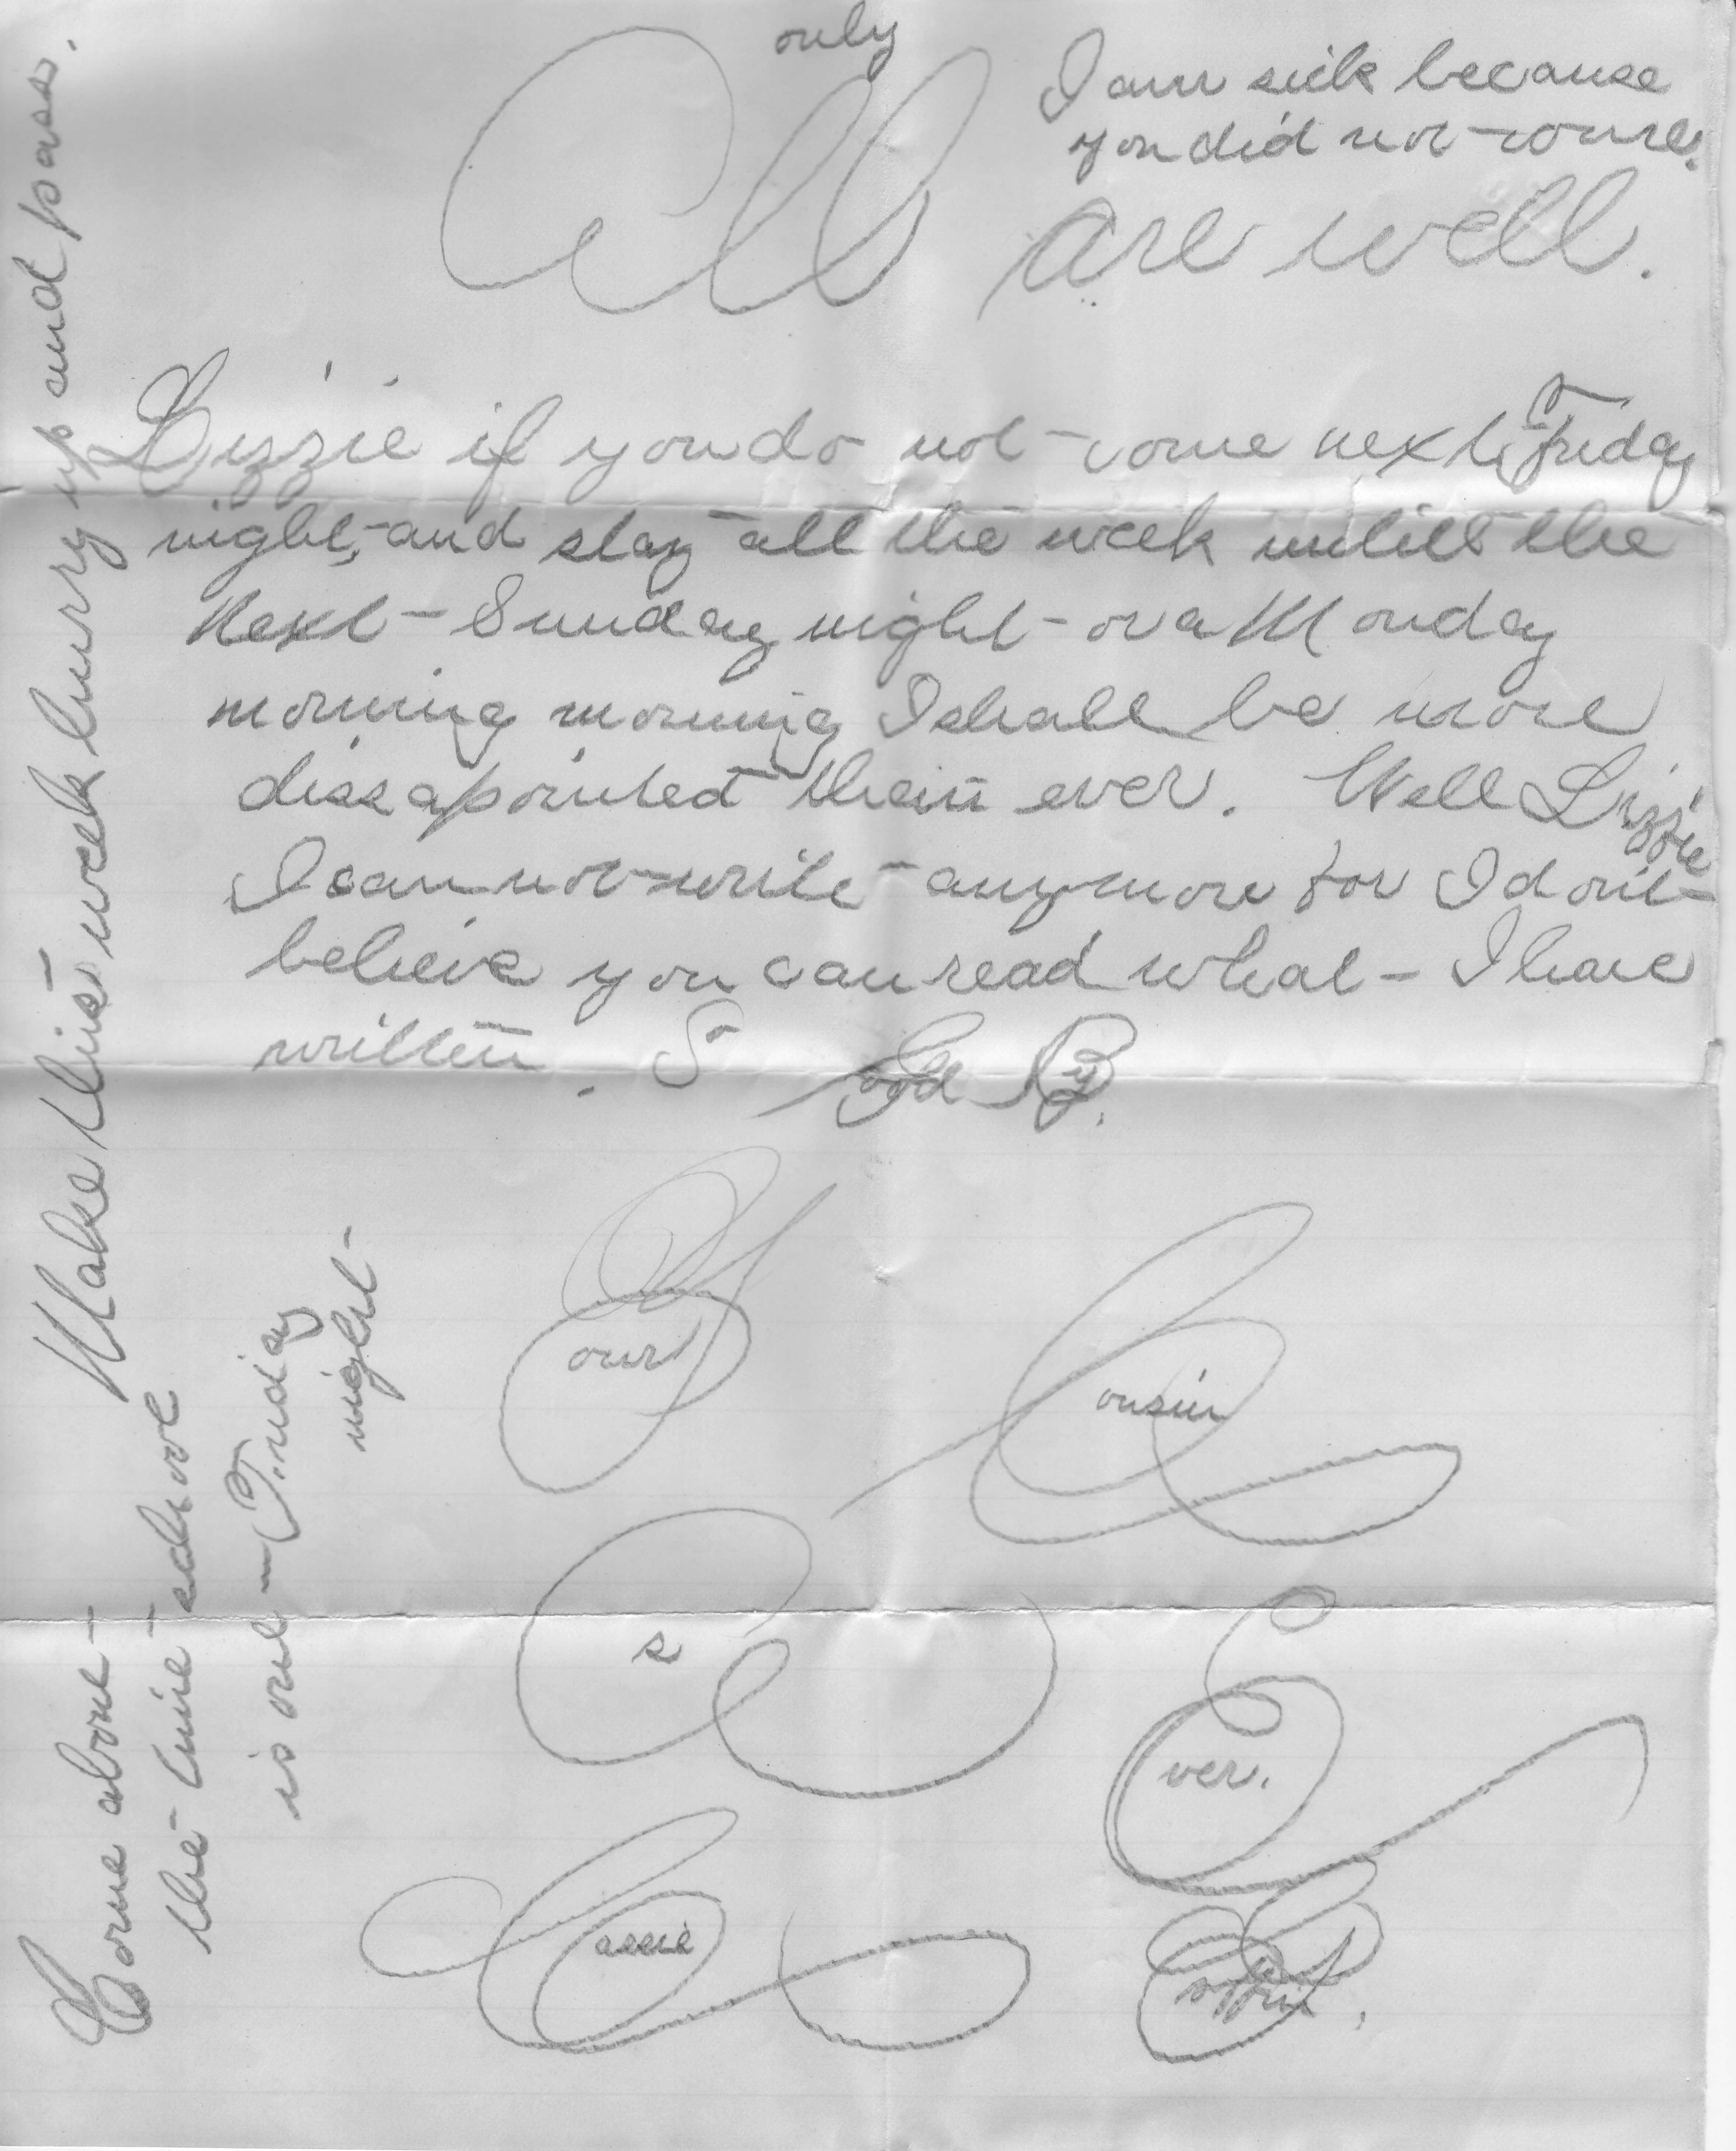 only
I am sick because
you did not come.
All are well.
Lizzie if you do not come next Friday
night, and stay all the week untill the
Next Sunday night or a Monday
morning morning I shall be more
dissapointed than ever. Well Lizzie
I can not write any more for I dont
believe you can read what I have
written. So Good By.
Your Cousin
as Ever.
Cassie Coffin.
Make this week hurry up and pass.
Come about
the time school
is out Friday
night